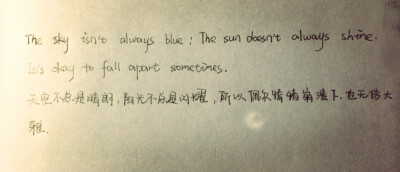 The sky isn't always blue; The sun doesn't always shine.
It's okay to fall apart sometimes.
天空不总是晴朗，阳光不总是闪耀，所以偶尔情绪崩溃下，也无伤大
雅.